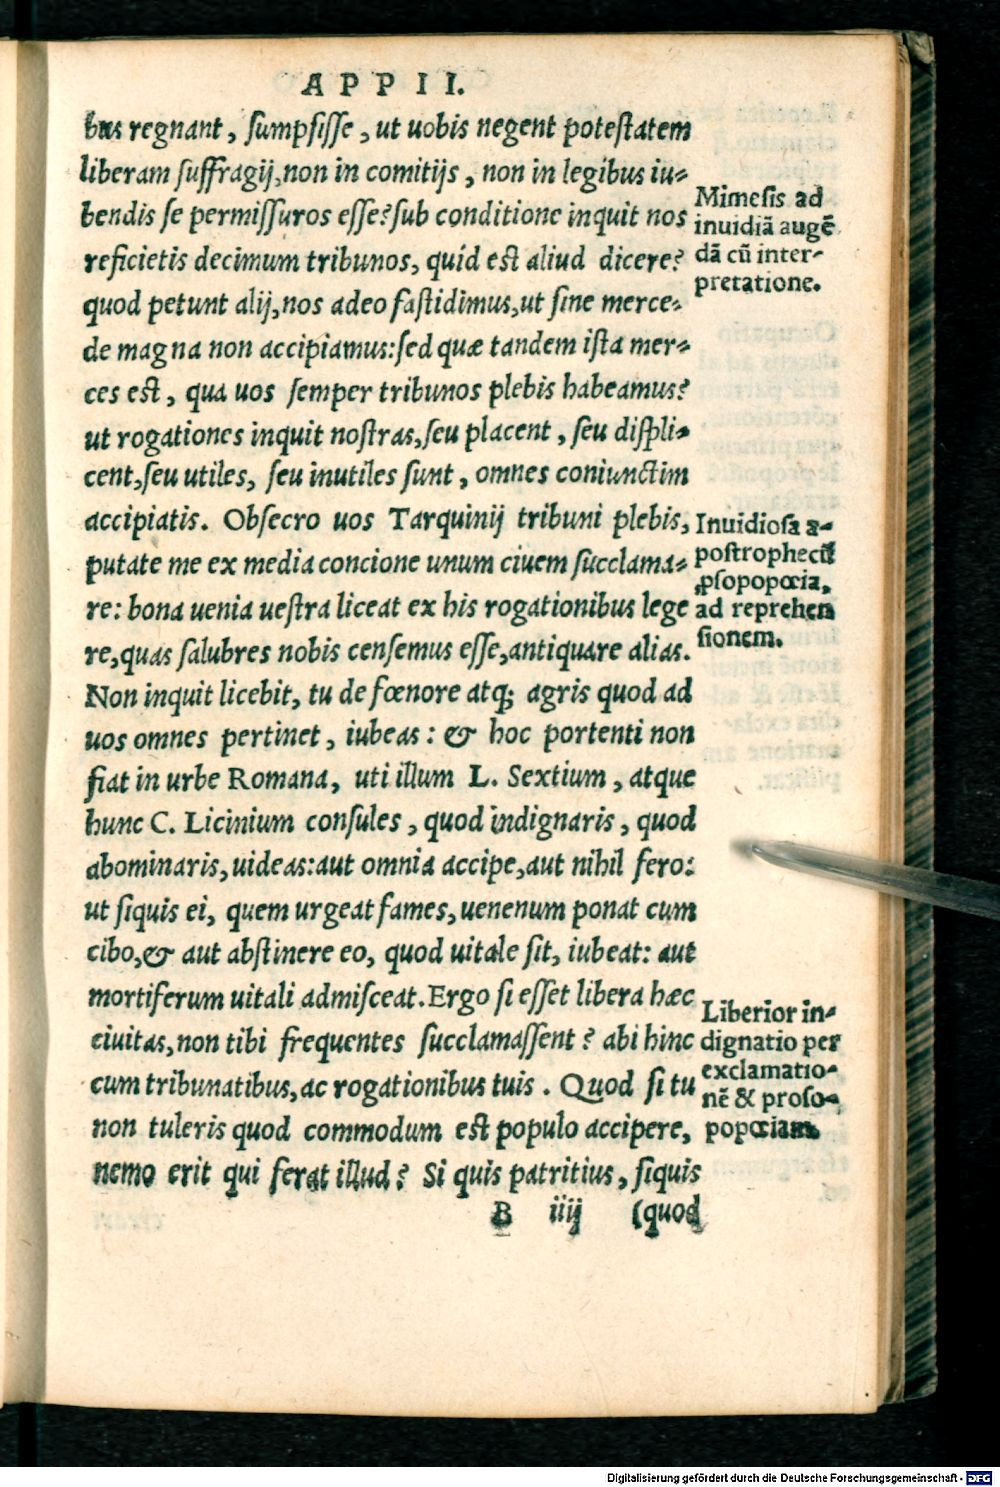 APPII.
bus regnant, sumpsisse, ut uobis negent potestatem
liberam suffragij, non in comitijs, non in legibus iu-
bendis se permissuros esse? sub conditione inquit nos
reficietis decimum tribunos, quid est aliud dicere?
quod petunt alij, nos adeo fastidimus, ut sine merce-
de magna non accipiamus: sed quæ tandem ista mer-
ces est, qua uos semper tribunos plebis habeamus?
ut rogationes inquit nostras, seu placent, seu displi-
cent, seu utiles, seu inutiles sunt, omnes coniunctim
accipiatis. Obsecro uos Tarquinij tribuni plebis,
putate me ex media concione unum ciuem succlama-
re: bona uenia uestra liceat ex his rogationibus lege
re, quas salubres nobis censemus esse, antiquare alias.
Non inquit licebit, tu de fœnore atq; agris quod ad
uos omnes pertinet, iubeas: & hoc portenti non
fiat in urbe Romana, uti illum L. Sextium, atque
hunc C. Licinium consules, quod indignaris, quod
abominaris, uideas: aut omnia accipe, aut nihil fero:
ut siquis ei, quem urgeat fames, uenenum ponat cum
cibo, & aut abstinere eo, quod uitale sit, iubeat: aut
mortiferum uitali admisceat. Ergo si esset libera hæc
ciuitas, non tibi frequentes succlamassent? abi hinc
cum tribunatibus, ac rogationibus tuis. Quod si tu
non tuleris quod commodum est populo accipere,
nemo erit qui ferat illud? Si quis patritius, siquis
B iiij (quod
Mimesis ad
inuidiã augẽ
dã cũ inter-
pretatione.
Inuidiosa a-
postrophe cũ
ꝓsopopœia,
ad reprehen
sionem.
Liberior in-
dignatio per
exclamatio-
nẽ & proso-
popœiam.
Digitalisierung gefördert durch die Deutsche Forschungsgemeinschaft - DFG